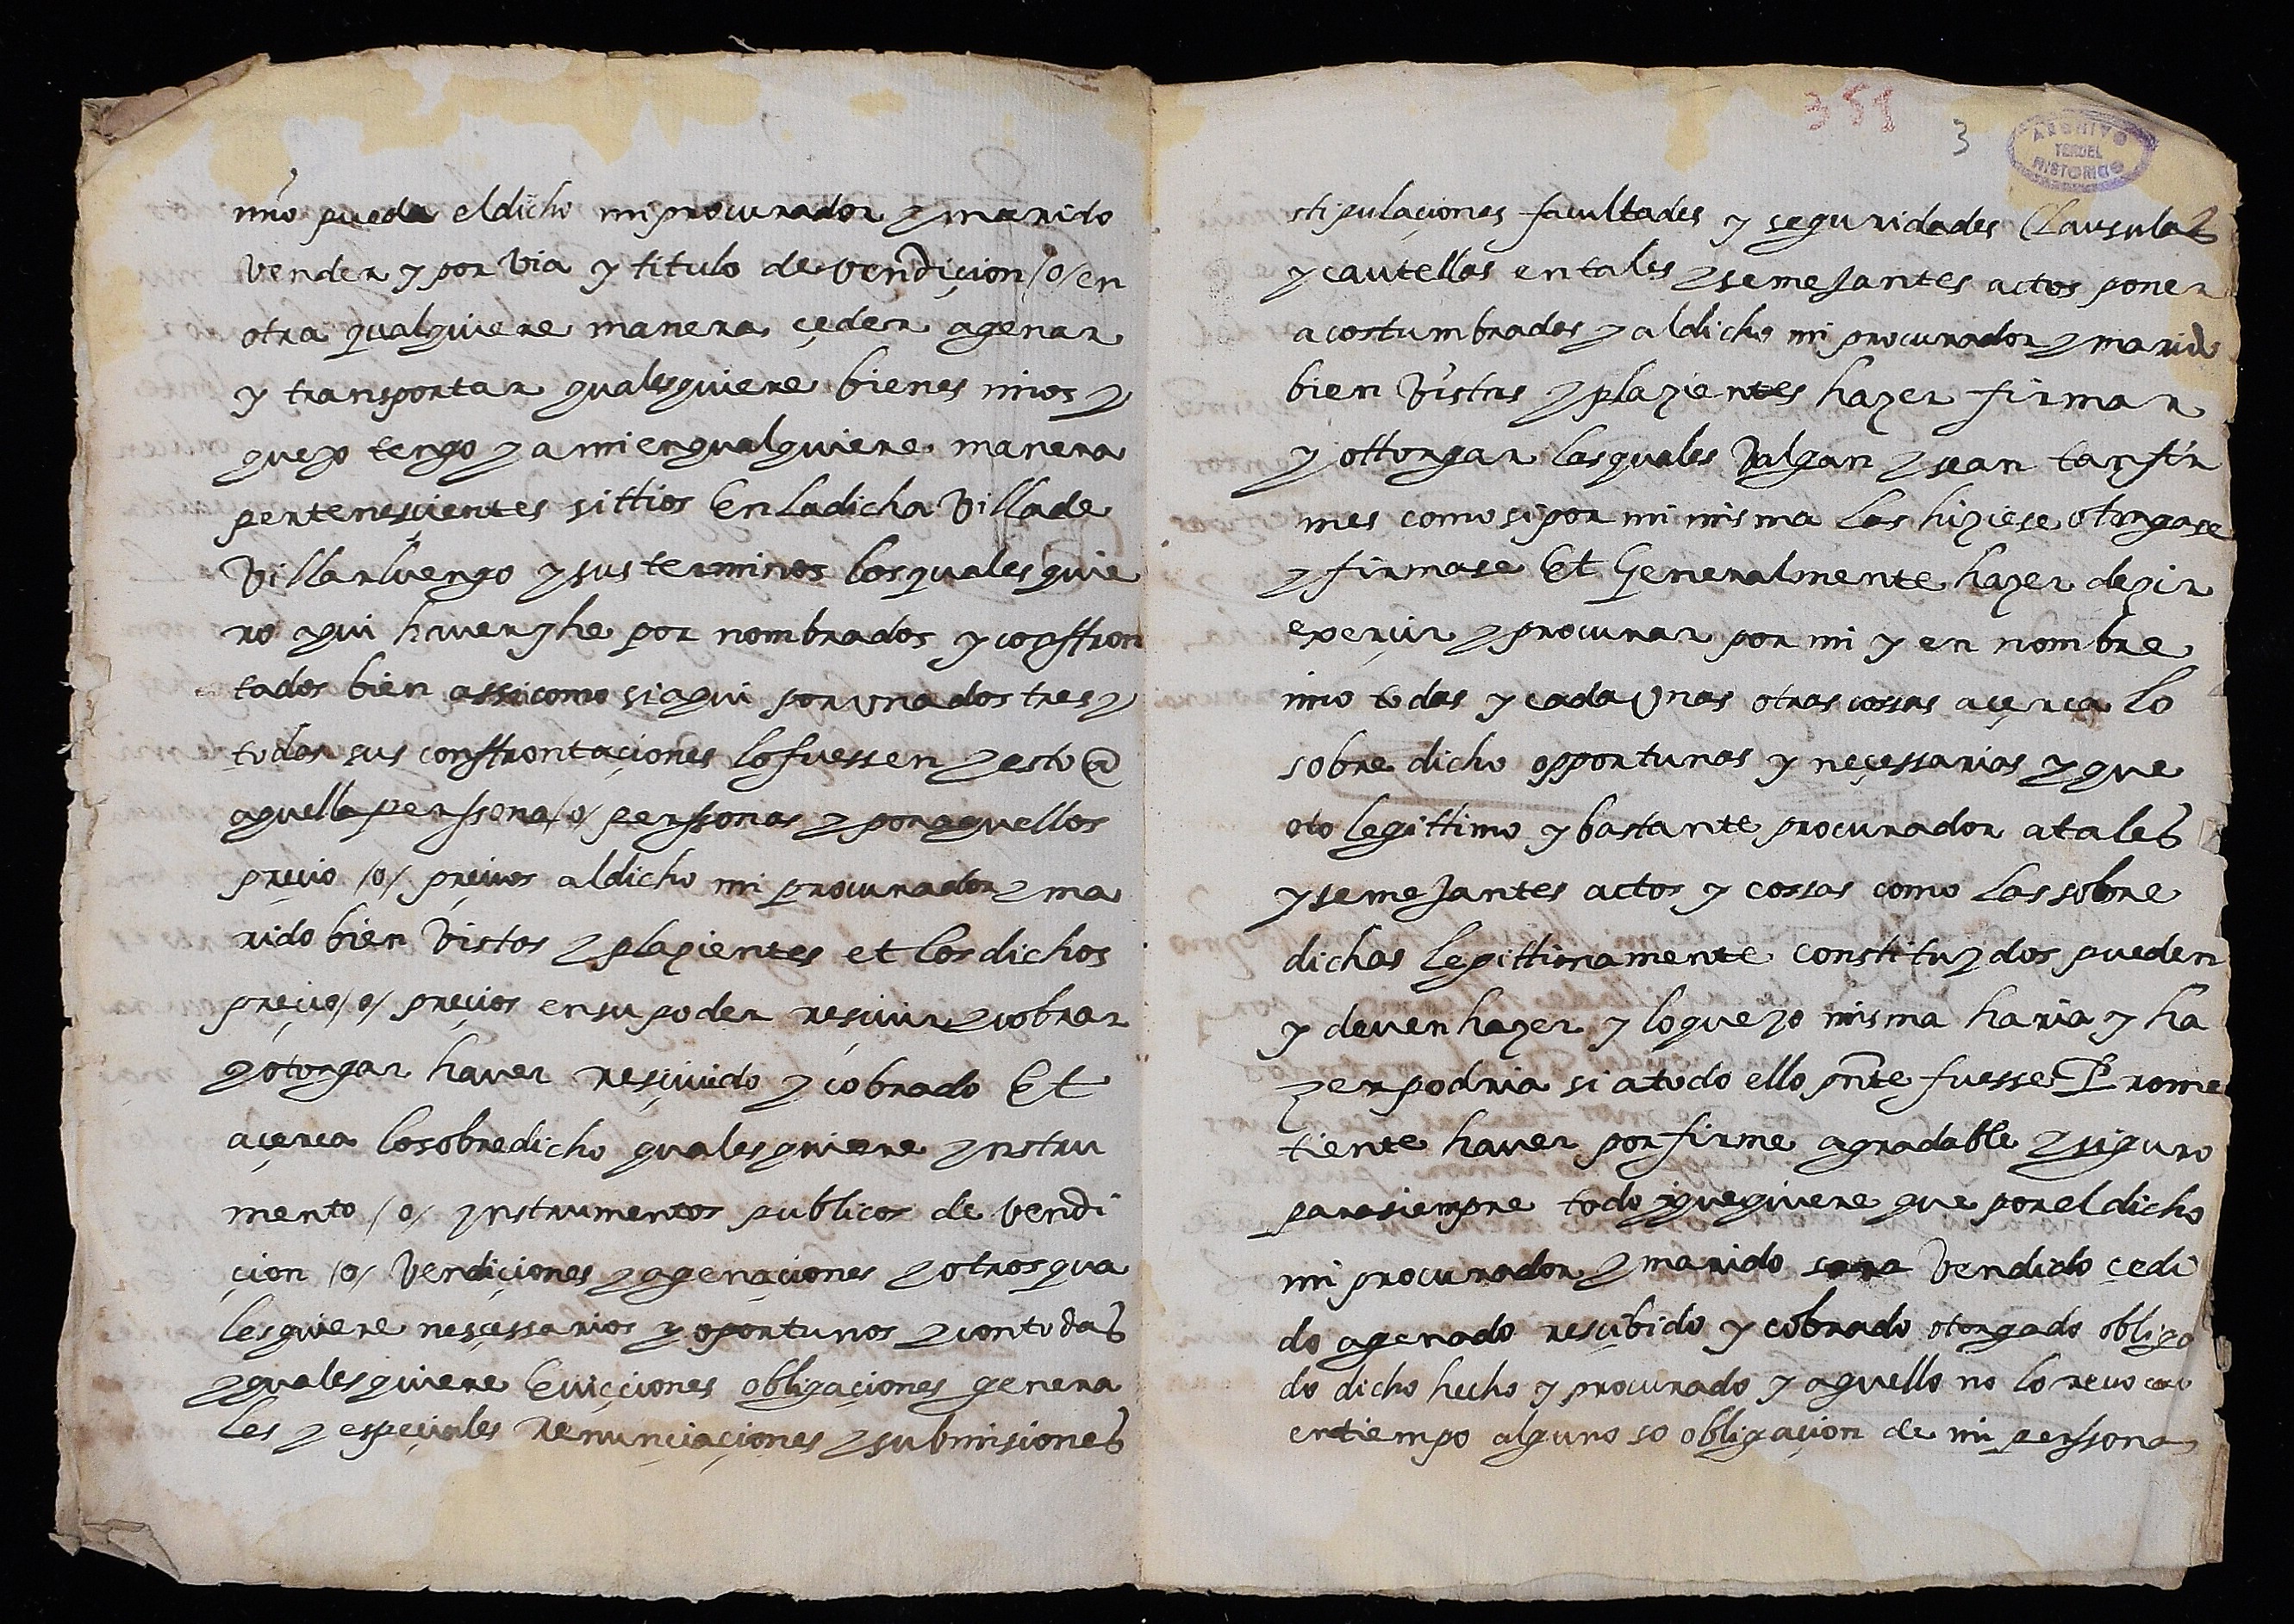 mio pueda el dicho mi procurador y marido
vender y por via y titulo de vendiçion /o/ en
otra qualquiere manera çeder agenar
y transportar qualesquiere bienes mios y
que yo tengo y a mi en qualquiere manera
pertenesçientes sittios En la dicha Villa de
Villarluengo y sus terminos los quales quie
ro aqui haver y he por nombrados y conffron
tados bien assi como si aqui por una dos tres y
todas sus conffrontaçiones lo fuessen y esto a
aquella perssona /o/ perssonas y por aquellos
preçio /o/ preçios al dicho mi procurador y ma
rido bien vistos y plazientes et los dichos
preçio /o/ preçios en su poder resçivir y cobrar
y otorgar haver resçivido y cobrado Et
açerca lo sobredicho qualesquiere ynstru
mento /o/ ynstrumentos publicos de vendi
çion /o/ vendiçiones y agenaçiones y otros qua
lesquiere nesçessarios y oportunos y con todas
y qualesquiere Evicçiones obligaçiones genera
les y espeçiales renunçiaçiones y submisiones
351
3
ARCHIVO
TERUEL
HISTORICO
stipulaçiones facultades y seguridades Clausulas
y cautellas en tales y semejantes actos poner
acostumbradas y al dicho mi procurador y marido
bien vistas y plazientes hazer firmar
y ottorgar las quales valgan y sean tan fir
mes como si por mi misma las hiziese otorgase
y firmase Et Generalmente hazer dezir
exerçir y procurar por mi y en nombre
mio todas y cada unas otras cossas açerca lo
sobre dicho opportunas y neçessarias y que
oto legittimo y bastante procurador a tales
y semejantes actos y cossas como las sobre
dichas legittimamente constituydos pueden
y deven hazer y lo que yo misma haria y ha
zer podria si a todo ello pnte fuesse Prome
tiente haver por firme agradable y siguro
para siempre todo y quequiere que por el dicho
mi procurador y marido sera vendido çedi
do agenado resçibido y cobrado otorgado obliga
do dicho hecho y procurado y aquello no lo revocar
en tiempo alguno so obligaçion de mi perssona